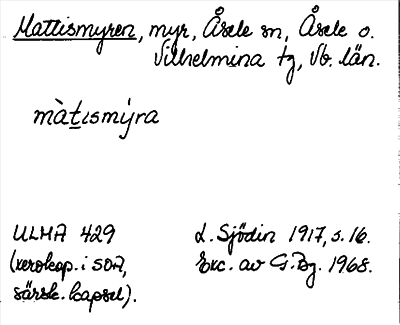 Mattismyren, myr, Åsele sn, Åsele o.
Vilhelmina tg, Vb. län.
màt̲ısmýra
ULMA 429
(xerokop. i SOA,
särsk. kapsel).
L. Sjödin 1917, s. 16.
Exc. av G. Bg. 1968.